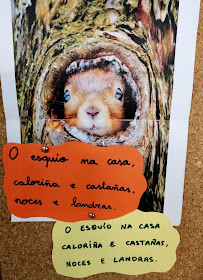 O esquío na casa,
caloriña e castañas,
noces e landras.
O ESQUÍO NA CASA
CALORIÑA E CASTAÑAS,
NOCES E LANDRAS.